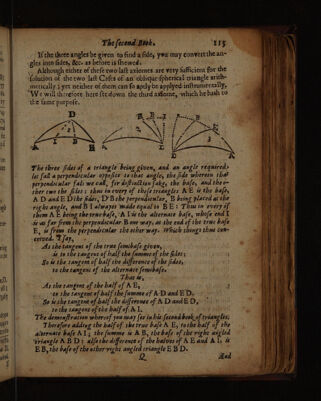 The second Book. 115
If the three angles be given to find a side, you may convert the an-
gles into sides, &c. as before is shewed.
Although either of these two last axiomes are very sufficient for the
solution of the two last Cases of an oblique sphericall triangle arith-
metically; yet neither of them can so aptly be applyed instrumentally.
We will therefore here set down the third axiome, which he hath to
the same purpose.
D
A B E
D
A E
The three sides of a triangle being given, and an angle required;
let fall a perpendicular opposite to that angle, the side wherein that
perpendicular fals we call, for distinction sake, the base, and the o-
ther two the sides: thus in every of these triangles A E is the base,
A D and E D the sides, D B the perpendicular, B being placed at the
right angle, and B I alwayes made equall to B E: Thus in every of
them A E being the true base, A I is the alternate base, whose end I
is as far from the perpendicular B one way, as the end of the true base
E, is from the perpendicular the other way. Which things thus con-
ceived. I say,
As the tangent of the true semibase given,
is to the tangent of half the summe of the sides;
So is the tangent of half the difference of the sides,
to the tangent of the alternate semibase.
That is,
As the tangent of the half of A E,
to the tangent of half the summe of A D and E D.
So is the tangent of half the difference of A D and E D,
to the tangent of the half of A I.
The demonstration whereof you may see in his second book of triangles.
Therefore adding the half of the true base A E, to the half of the
alternate base A I; the summe is A B, the base of the right angled
triangle A B D: also the difference of the halves of A E and A I, is
E B, the base of the other right angled triangle E B D.
Q And